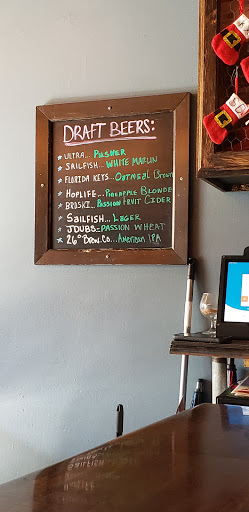 DRAFT BEERS:
* ULTRA... PILSNER
* SAILFISH... WHITE MARLIN
* FLORIDA KEYS... OATMEAL BROWN
* HOPLIFE... PINEAPPLE BLONDE
* BROSKI... PASSION FRUIT CIDER
* SAILFISH... LAGER
* JDUBS... PASSION WHEAT
* 26° BREW. CO... AMERICAN IPA